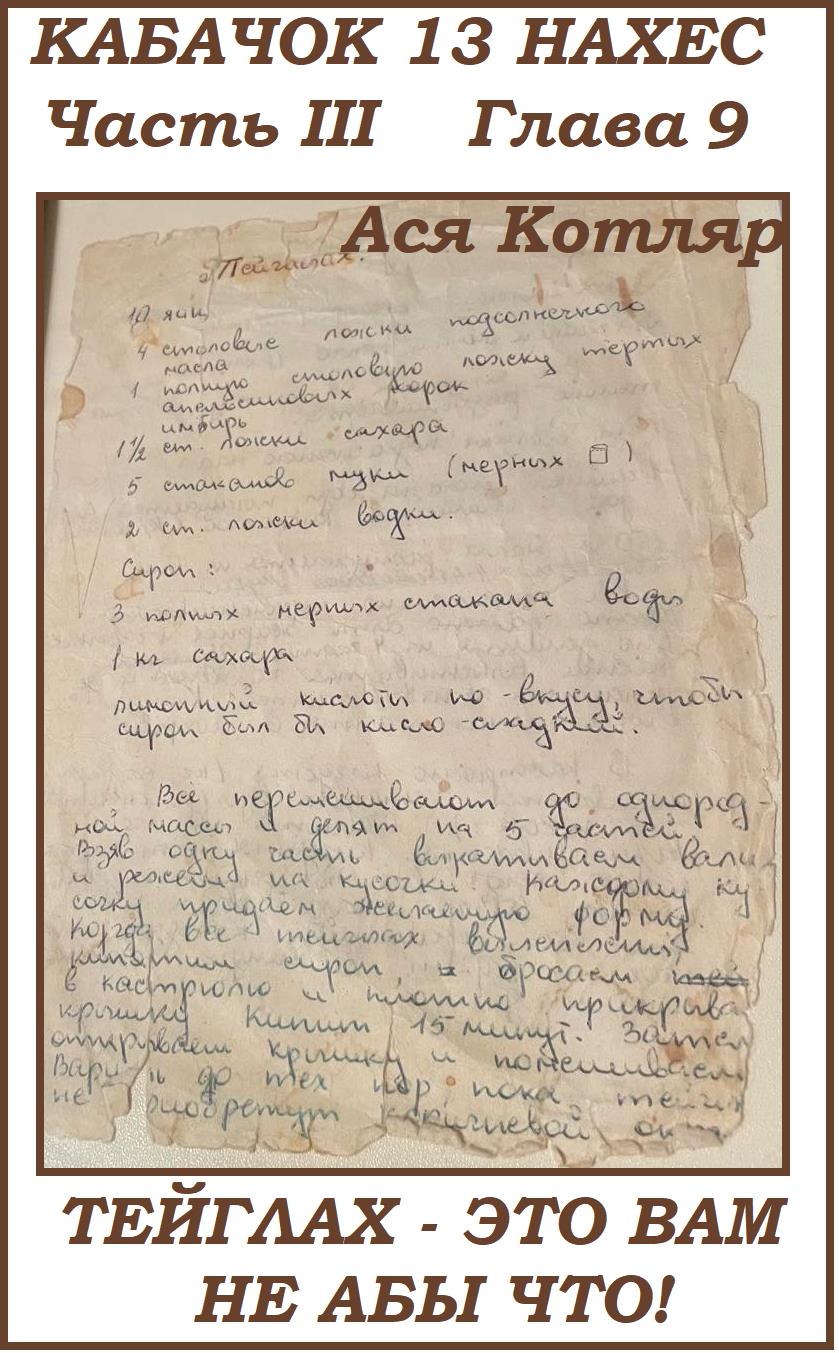 КАБАЧОК 13 НАХЕС
Часть III Глава 9
Ася Котляр
Тейглах.
10 яиц
4 столовые ложки подсолнечного
масла
1 полную столовую ложку тертых
апельсиновых корок
имбирь
1 1/2 ст. ложки сахара
5 стаканов муки (мерных )
2 ст. ложки водки.
Сироп:
3 полных мерных стакана воды
1 кг сахара
лимонный кислоты по-вкусу, чтобы
сироп был бы кисло-сладкий.
Всё перемешивают до однород-
ной массы и делят на 5 частей.
Взяв одну часть выкатываем вали
и режем на кусочки. Каждому ку
сочку придаем желаемую форму.
Когда все тейглах вылеплены,
кипятим сироп, бросаем
в кастрюлю и плотно прикрыва
крышку. Кипит 15 минут. Затем
открываем крышку и помешиваем.
до тех пор пока
не коричневой
ТЕЙГЛАХ - ЭТО ВАМ
НЕ АБЫ ЧТО!